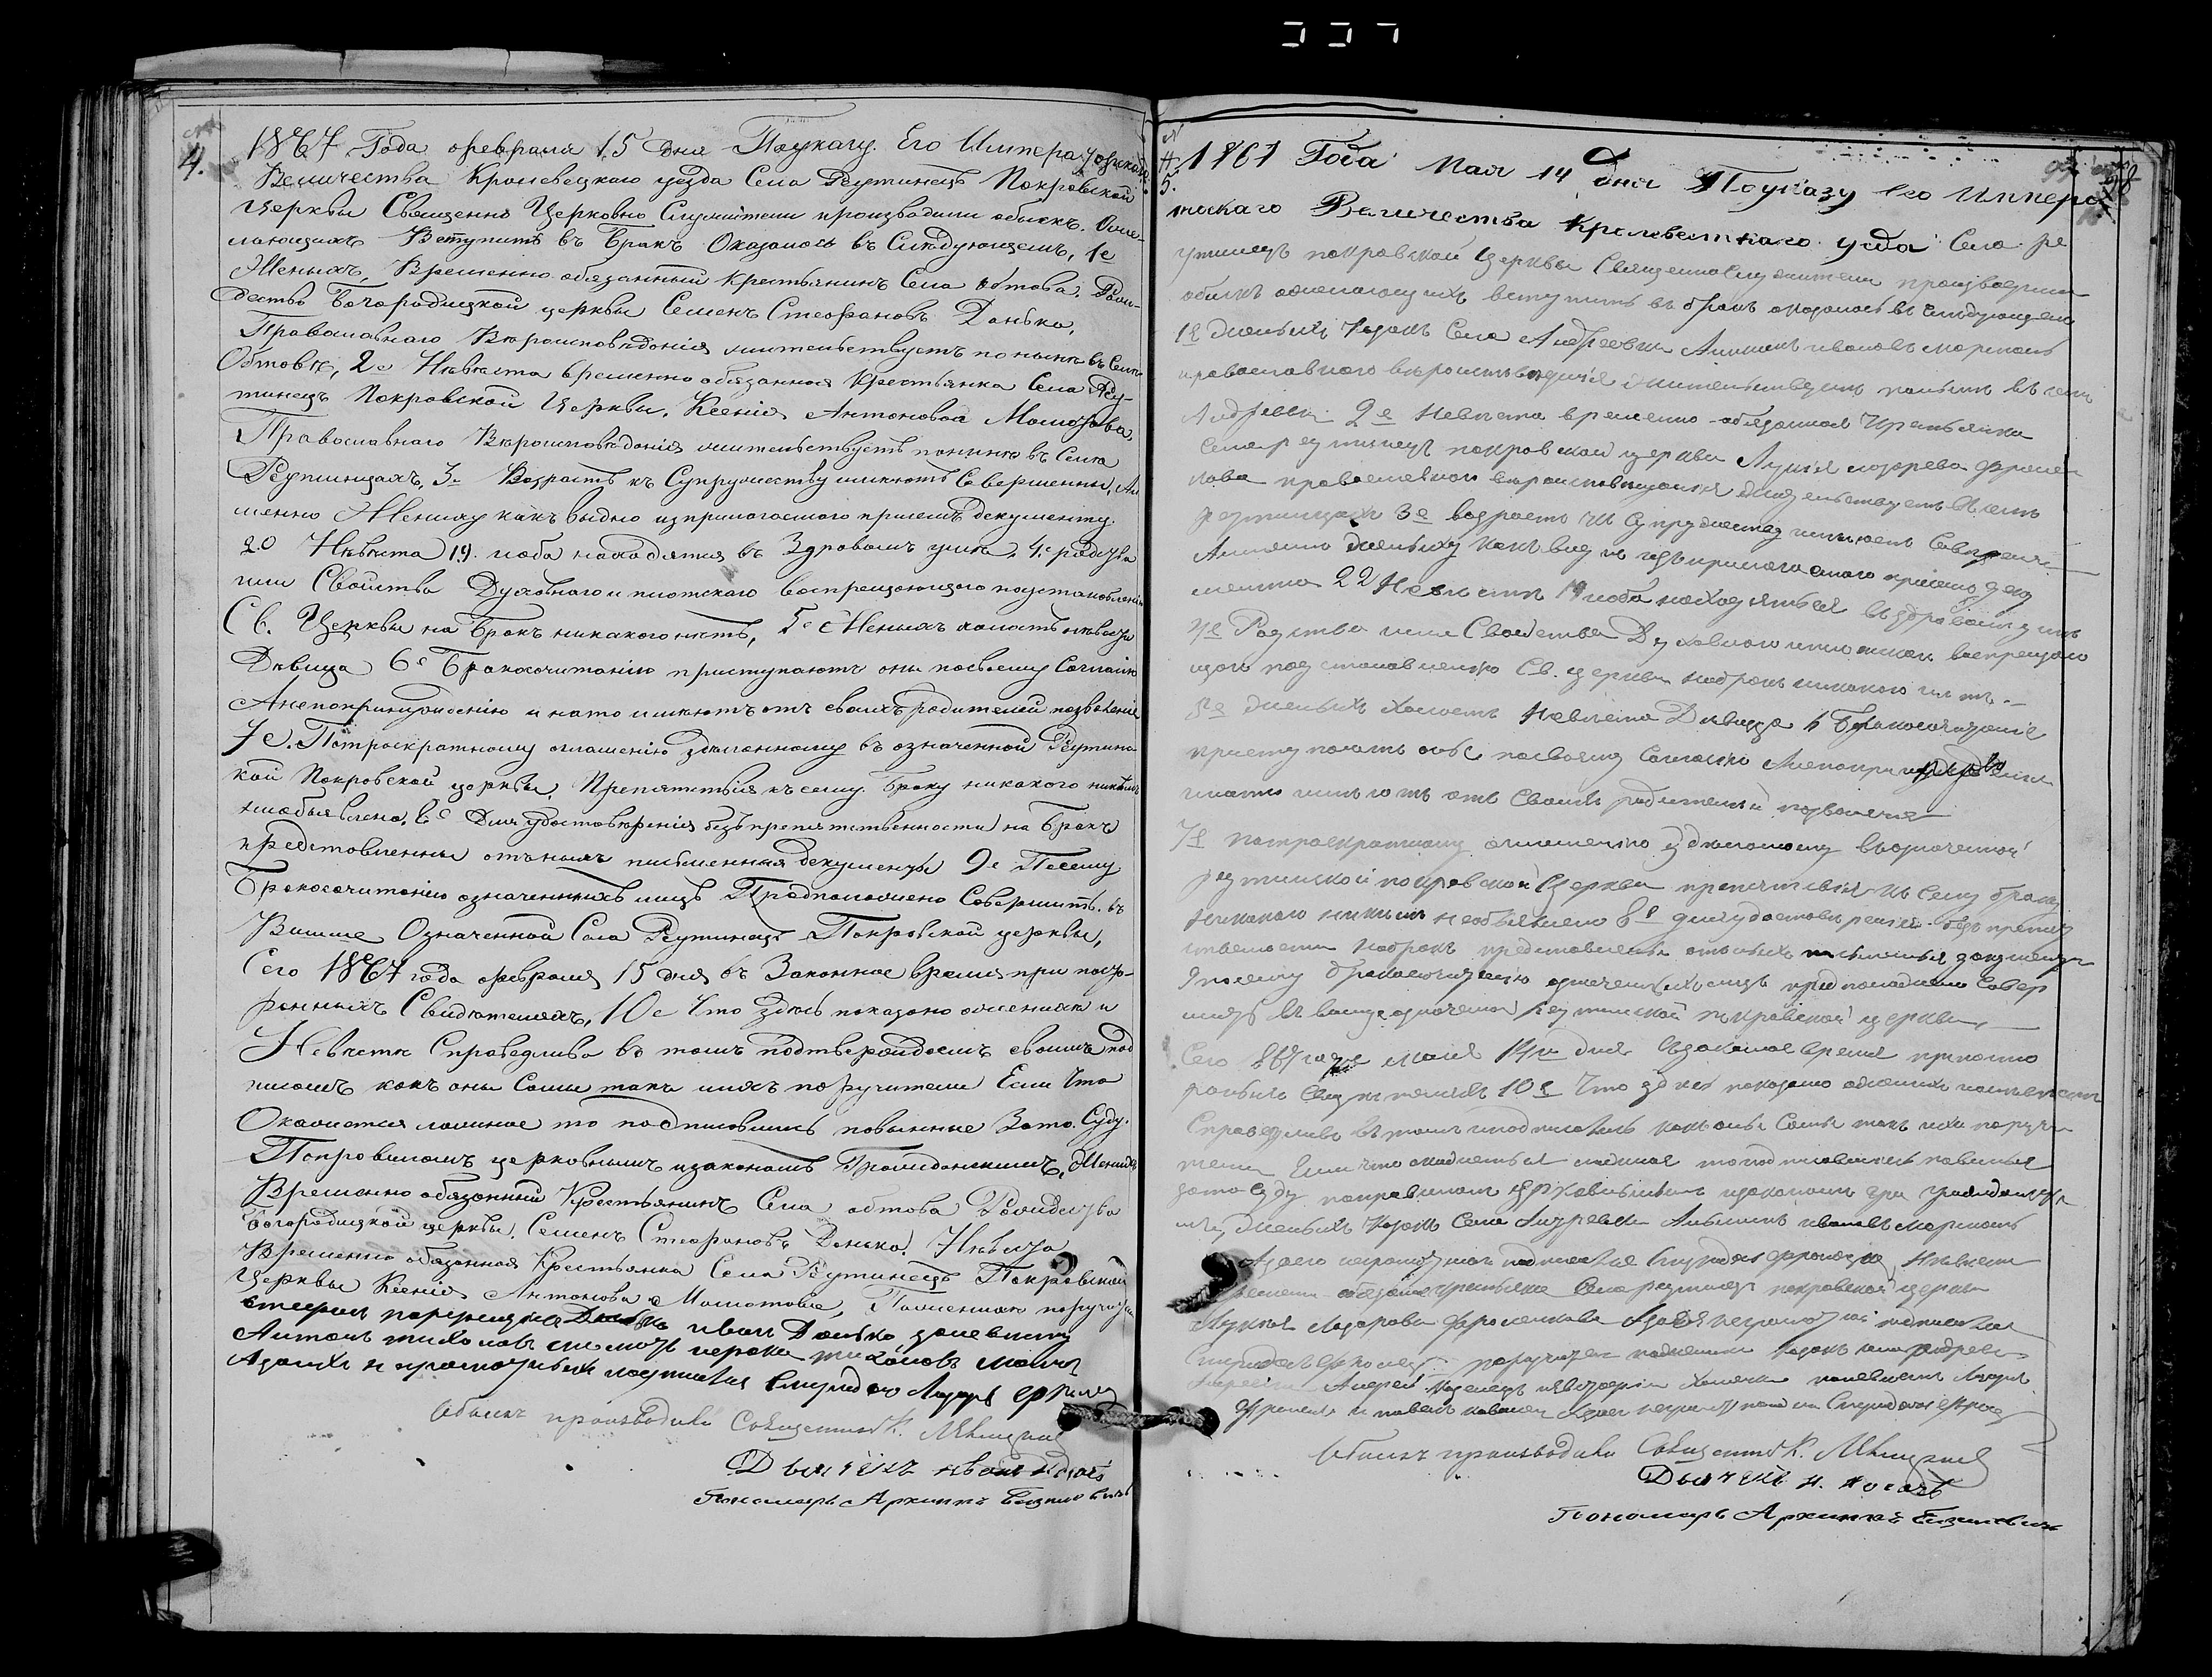 4.
1867 Года февраля 15 дня По указу Его Императорскаго
Величества Кролевецкаго уезда Села Реутинецъ Покровской
Церкви Священно Церковно Служители производили обыскъ о же-
лающихъ Вступить въ Бракъ Оказалось въ Следующемъ, 1е
Женихъ, Временно обязанный Крестьянинъ Села Обтова, Рож-
дество Богородицкой церкви Семенъ Стефановъ Данько,
Православнаго Вероисповедания жительствуетъ поныне въ Селе
Обтове, 2е Невеста временно обязанная Крестьянка Села Реу-
тинецъ Покровской Церкви, Ксения Антоновна
Православнаго Вероисповедания жительствуетъ поныне въ Селе
Реутинцахъ, 3е Возрастъ къ Супружеству имеютъ Совершенны, А и
менно Жениху какъ видно изъ прилагаемаго при семъ документу
20 Невеста 19. и оба находятся въ Здравомъ уме, 4е родства
или Свойства Духовнаго и плотскаго воспрещающаго по установлению
Св. Церкви на бракъ никакого нетъ, 5е Женихъ холостъ невеста
Девица 6е Бракосочитанию приступаютъ они по своему Согласию
А не по принуждению и на то имеютъ отъ своихъ родителей позволение
7е. По троекратному оглашению зделанному въ означенной Реутин
кой Покровской церкви, Препятствия къ сему Браку никакого никемъ
не объявлено, 8е Для удостоверения безъ препятственности на Бракъ
представлены отъ нихъ письменныя документы 9е По сему
Бракосочитанию означенныхъ лицъ Предположено Совершить въ
Вышше Означенной Села Реутинецъ Покровской церкви,
Сего 1867 года февраля 15 дня въ Законное время при посто-
ронныхъ Свидетеляхъ, 10е Что здесь показано о женихе и
Невесте Справедливо въ томъ подтверждаемъ своимъ под
писомъ какъ они Сами такъ и ихъ поручители Если Что
Окажется ложное то подписавшись повынные Зато Суду
По правиламъ церковнымъ и законамъ Гражданскимъ, Женихъ
Временно обязанный Крестьянинъ Села обтова Рождества
Богородицкой церкви, Семенъ Стефановъ Данько, Невеста
Временно обязанная Крестьянка Села Реутинецъ Покровской
Церкви Ксения Антонова По женихе поручители
Иванъ Данько по невесту
Антонъ
А за ихъ неграмотныхъ
Обыскъ производили Священникъ К.
Дьячекъ Иванъ
Пономарь Архиппъ
5.
98
1867 Года Мая 14 дня По указу его Импера
торскаго Величества Кролевецкаго уезда Села Ре
утинецъ покровской Церкви Священнослужители производили
обыскъ о желающихъ вступить въ бракъ оказалось въ следующемъ
1е женихъ козакъ Села Андреевки Ивановъ
православнаго вероисповедания жительствуетъ поныне въ селе
Андреевки 2е Невеста временно обязанная Крестьянка
Села реутинецъ покровской церкви Лазарева
православнаго вероисповедания жительствуетъ въ селе
реутинцахъ 3е возрастъ къ Супружеству имеютъ Совершенны
А именно жениху какъ видно изъ прилагаемаго при семъ доку
мента 22 Невесте 19 и оба находятся въ здравомъ уме
4е Родства или Свойства Духовнаго или плотскаго воспрещаю
щаго по установлению Св. церкви на бракъ никакого нетъ.
5е женихъ холостъ Невеста Девица 6 Бракосочитание
приступаютъ они по своему Согласию А не по принуждению
и на то имеютъ отъ своихъ родителей позволения
7е по троекратному оглашению зделанному въ означенной
реутинской покровской Церкви препятствия къ сему браку
никакого никемъ не объявлено 8е для удостоверения безъ препят
ственности на бракъ представлены отъ нихъ письменныя документы
9 по сему бракосочитанию означенныхъ лицъ предположено Совер
шить въ выше означенной Реутинской покровской церкви
Сего 867 года мая 14го дня въ законное время при посто
ронныхъ Свидетеляхъ 10е Что здесь показано о женихе и о невесте
Справедливо въ томъ и подписались какъ они Сами такъ и ихъ поручи
тели Если что окажется ложное то подписавшись повынные
зато суду по правиламъ церковнымъ и законамъ гражданскимъ
женихъ козакъ Села Андреевки Ивановъ
А за его неграмотнаго подписался Невеста
временно обязанная крестьянка Села реутинецъ покровской церкви
Лазарева А за ея неграмотную подписался
поручители по женихе козакъ села
Андрей по невесте Лазарь
и павелъ
Обыскъ производили Священникъ К.
Дьячекъ И.
Пономарь Архиппъ